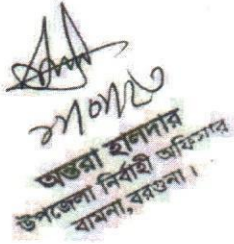 অন্তরা হালদার
উপজেলা নির্বাহী অফিসার
বামনা, বরগুনা।